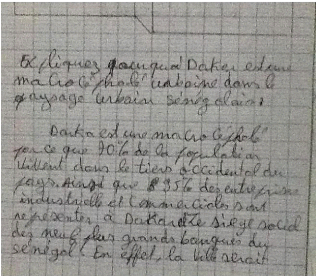 Expliquez pourquoi Dakar est une
macrocéphale urbaine dans le
paysage urbain sénégalais
Dakar est une macrocéphale
par ce que 70% de la population
vivent dans le tiers occidental du
pays. Ainsi que 95% des entreprises
industrielle et Commerciales sont
représenter à Dakar siège social
des neuf plus grands banques du
Sénégal. En effet, la ville serait